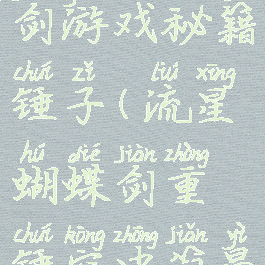 剑游戏秘籍
chuí zǐ liú xīng
锤子(流星
hú dié jiàn zhòng
蝴蝶剑重
chuí kōng zhōng jiǎn yì